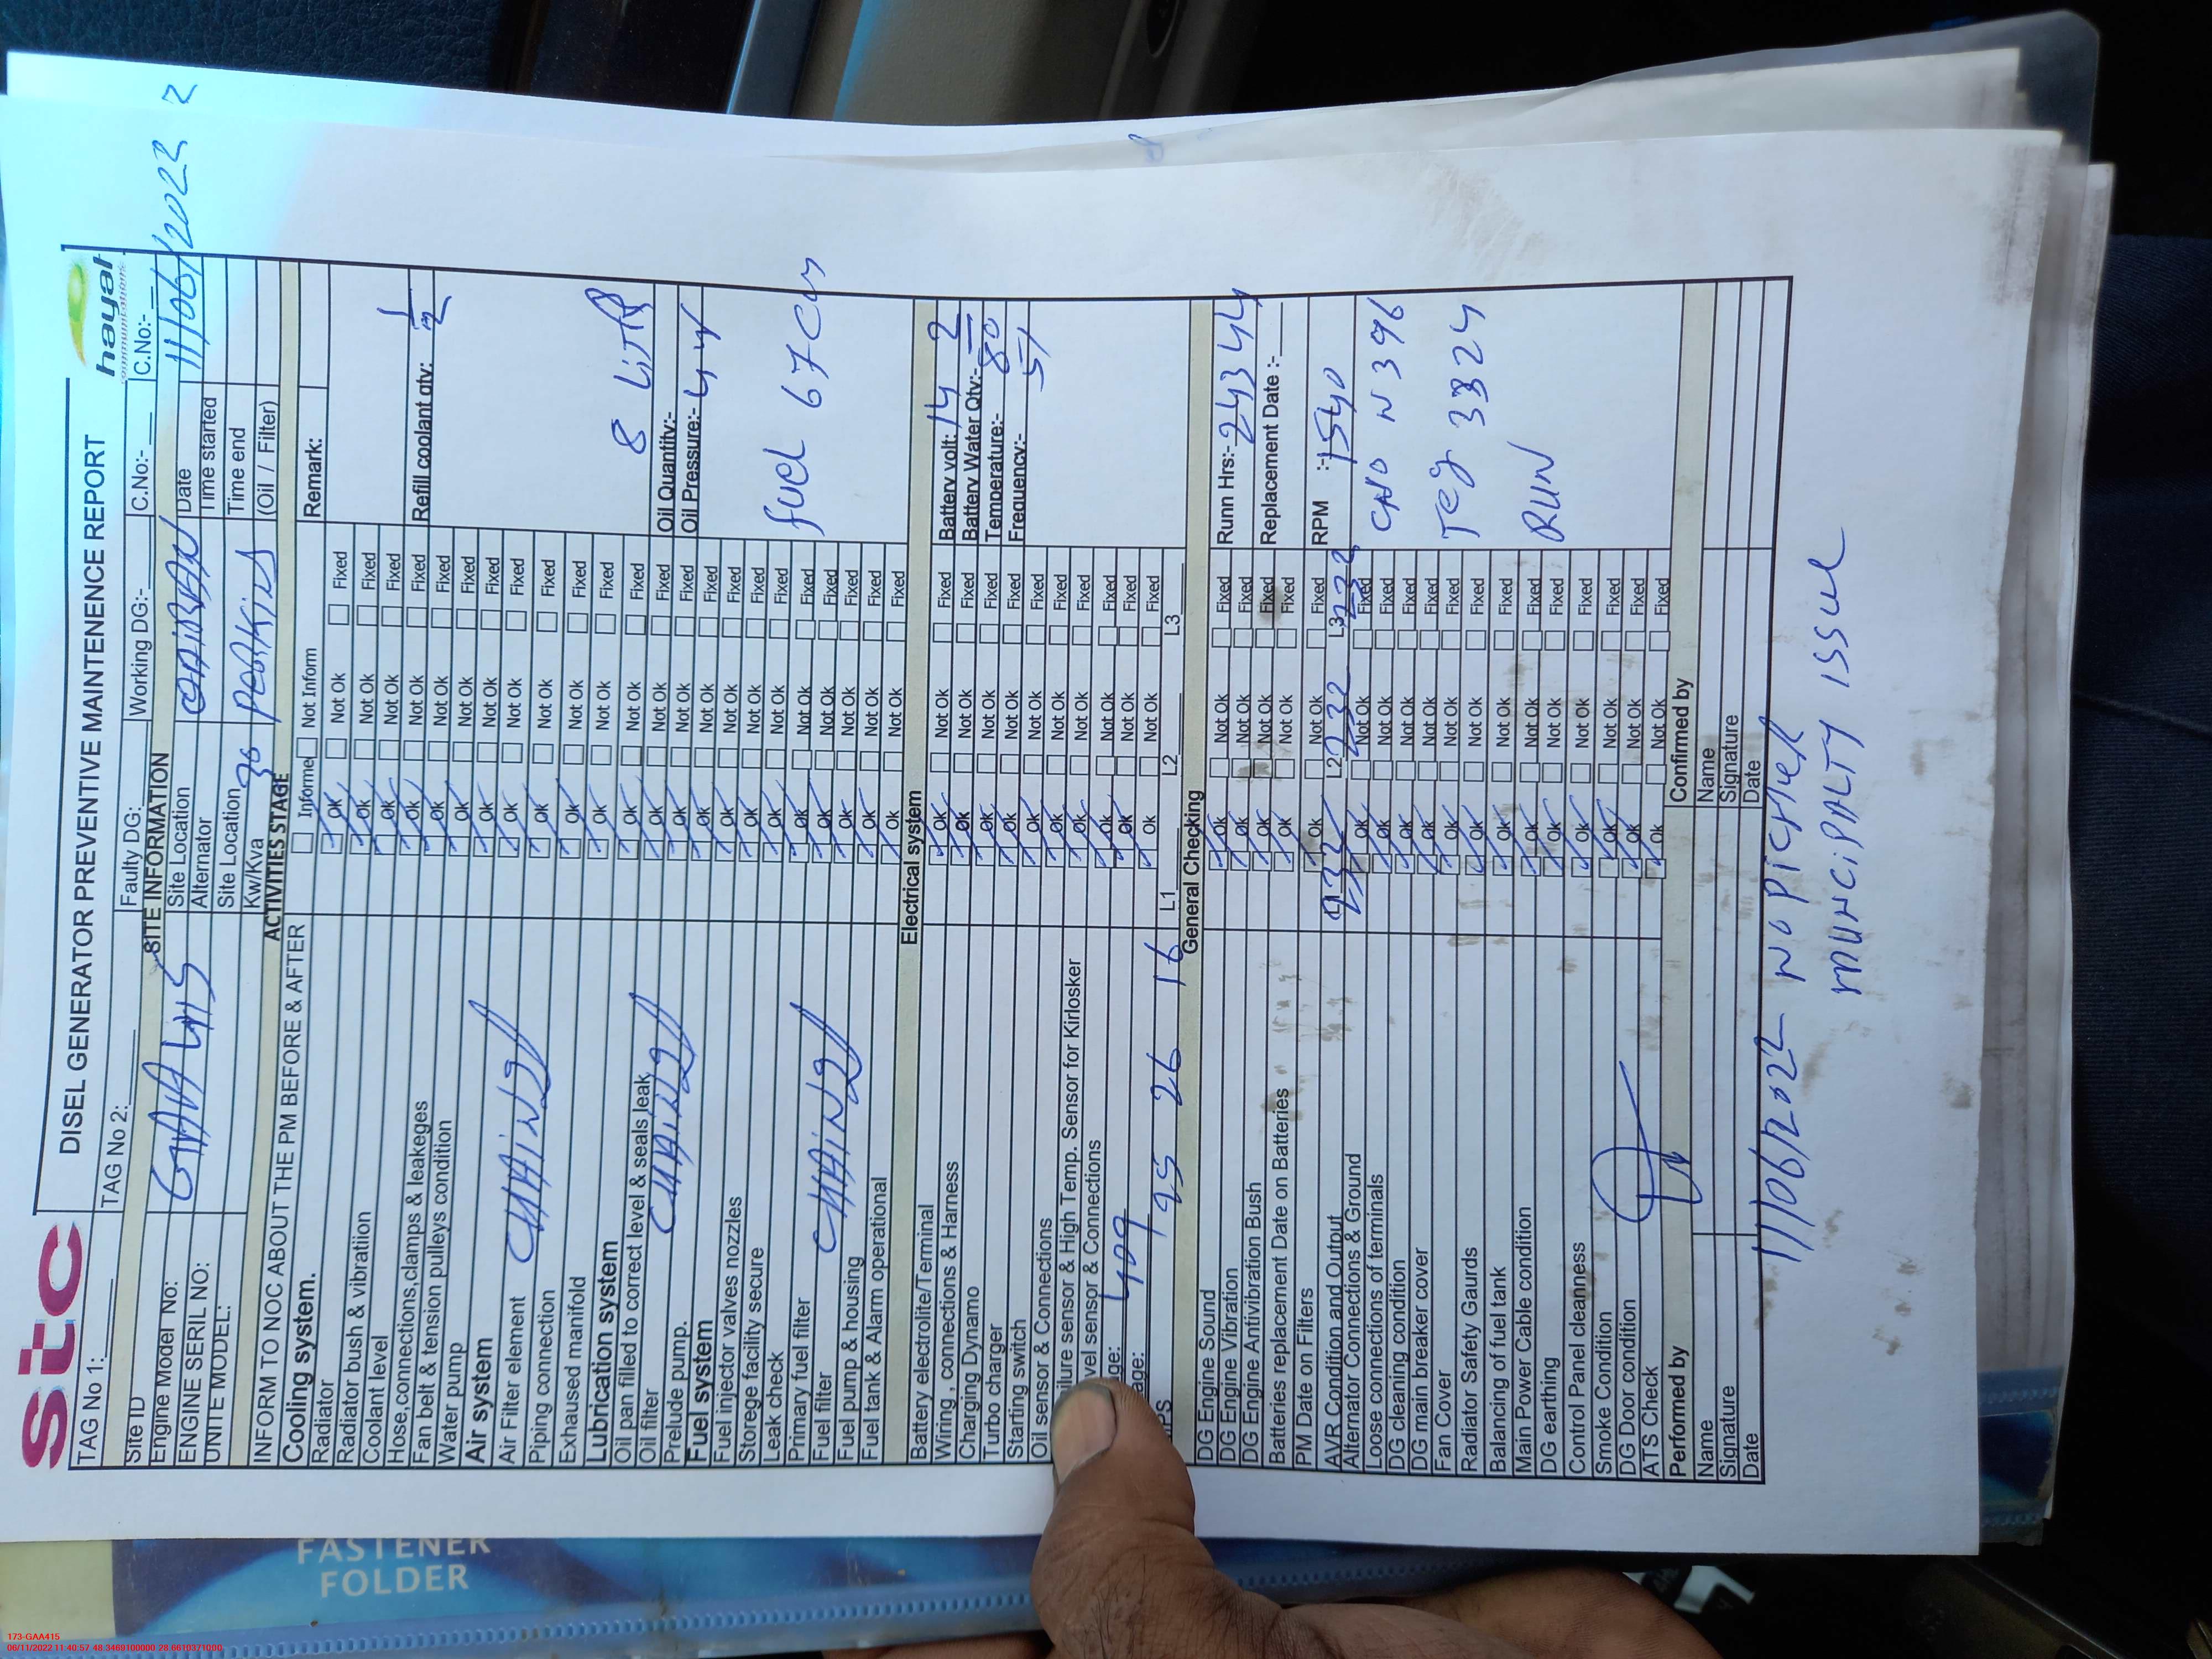 stc
DISEL GENERATOR PREVENTIVE MAINTENENCE REPORT
hayat
communications
TAG No 1:
TAG No 2:
Faulty DG:
Working DG:-
C.No:-
C.No:-
SITE INFORMATION
Site ID
Site Location
Date 11/06/2022
Engine Model No:
Alternator
Time started
ENGINE SERIL NO:
Site Location
Time end
UNITE MODEL:
Kw/Kva 30 PERKINS
(Oil / Filter)
ACTIVITIES STAGE
INFORM TO NOC ABOUT THE PM BEFORE & AFTER Informe Not Inform
Cooling system. Remark:
Radiator Ok Not Ok Fixed
Radiator bush & vibratiion Ok Not Ok Fixed
Coolant level Ok Not Ok Fixed
Hose,connections,clamps & leakeges Ok Not Ok Fixed Refill coolant qty: 1/2
Fan belt & tension pulleys condition Ok Not Ok Fixed
Water pump Ok Not Ok Fixed
Air system Ok Not Ok Fixed
Air Filter element Ok Not Ok Fixed
Piping connection Ok Not Ok Fixed
Exhaused manifold Ok Not Ok Fixed
Lubrication system Ok Not Ok Fixed
Oil pan filled to correct level & seals leak Ok Not Ok Fixed 8 LiTR
Oil filter Ok Not Ok Fixed Oil Quantity:-
Prelude pump. Ok Not Ok Fixed Oil Pressure:-
Fuel system Ok Not Ok Fixed
Fuel injector valves nozzles Ok Not Ok Fixed
Storege facility secure Ok Not Ok Fixed
Leak check Ok Not Ok Fixed
Primary fuel filter Ok Not Ok Fixed fuel 67 Cm
Fuel filter Ok Not Ok Fixed
Fuel pump & housing Ok Not Ok Fixed
Fuel tank & Alarm operational Ok Not Ok Fixed
Electrical system
Battery electrolite/Terminal Ok Not Ok Fixed Battery volt: 14 2
Wiring , connections & Harness Ok Not Ok Fixed Battery Water Qty:-
Charging Dynamo Ok Not Ok Fixed Temperature:- 80
Turbo charger Ok Not Ok Fixed Frequency:- 51
Starting switch Ok Not Ok Fixed
Oil sensor & Connections Ok Not Ok Fixed
ilure sensor & High Temp. Sensor for Kirlosker Ok Not Ok Fixed
vel sensor & Connections Ok Not Ok Fixed
age: 409 Ok Not Ok Fixed
age:
95 26 16 L1 L2 L3
General Checking
DG Engine Sound Ok Not Ok Fixed Runn Hrs:- 24344
DG Engine Vibration Ok Not Ok Fixed
DG Engine Antivibration Bush Ok Not Ok Fixed Replacement Date :-
Batteries replacement Date on Batteries Ok Not Ok Fixed
PM Date on Filters Ok Not Ok Fixed RPM :- 1540
AVR Condition and Output L2 232 L3 232
Alternator Connections & Ground Ok Not Ok Fixed
Loose connections of terminals Ok Not Ok Fixed
DG cleaning condition Ok Not Ok Fixed
DG main breaker cover Ok Not Ok Fixed
Fan Cover Ok Not Ok Fixed
Radiator Safety Gaurds Ok Not Ok Fixed
Balancing of fuel tank Ok Not Ok Fixed
Main Power Cable condition Ok Not Ok Fixed
DG earthing Ok Not Ok Fixed RUN
Control Panel cleanness Ok Not Ok Fixed
Smoke Condition Ok Not Ok Fixed
DG Door condition Ok Not Ok Fixed
ATS Check Ok Not Ok Fixed
Performed by Confirmed by
Name Name
Signature Signature
Date Date
11/06/2022 NO PICHER
MUNCiPALTY ISSUE
FASTENER
FOLDER
173-GAA415
06/11/2022 11:40:57 48.3469100000 28.6610371000